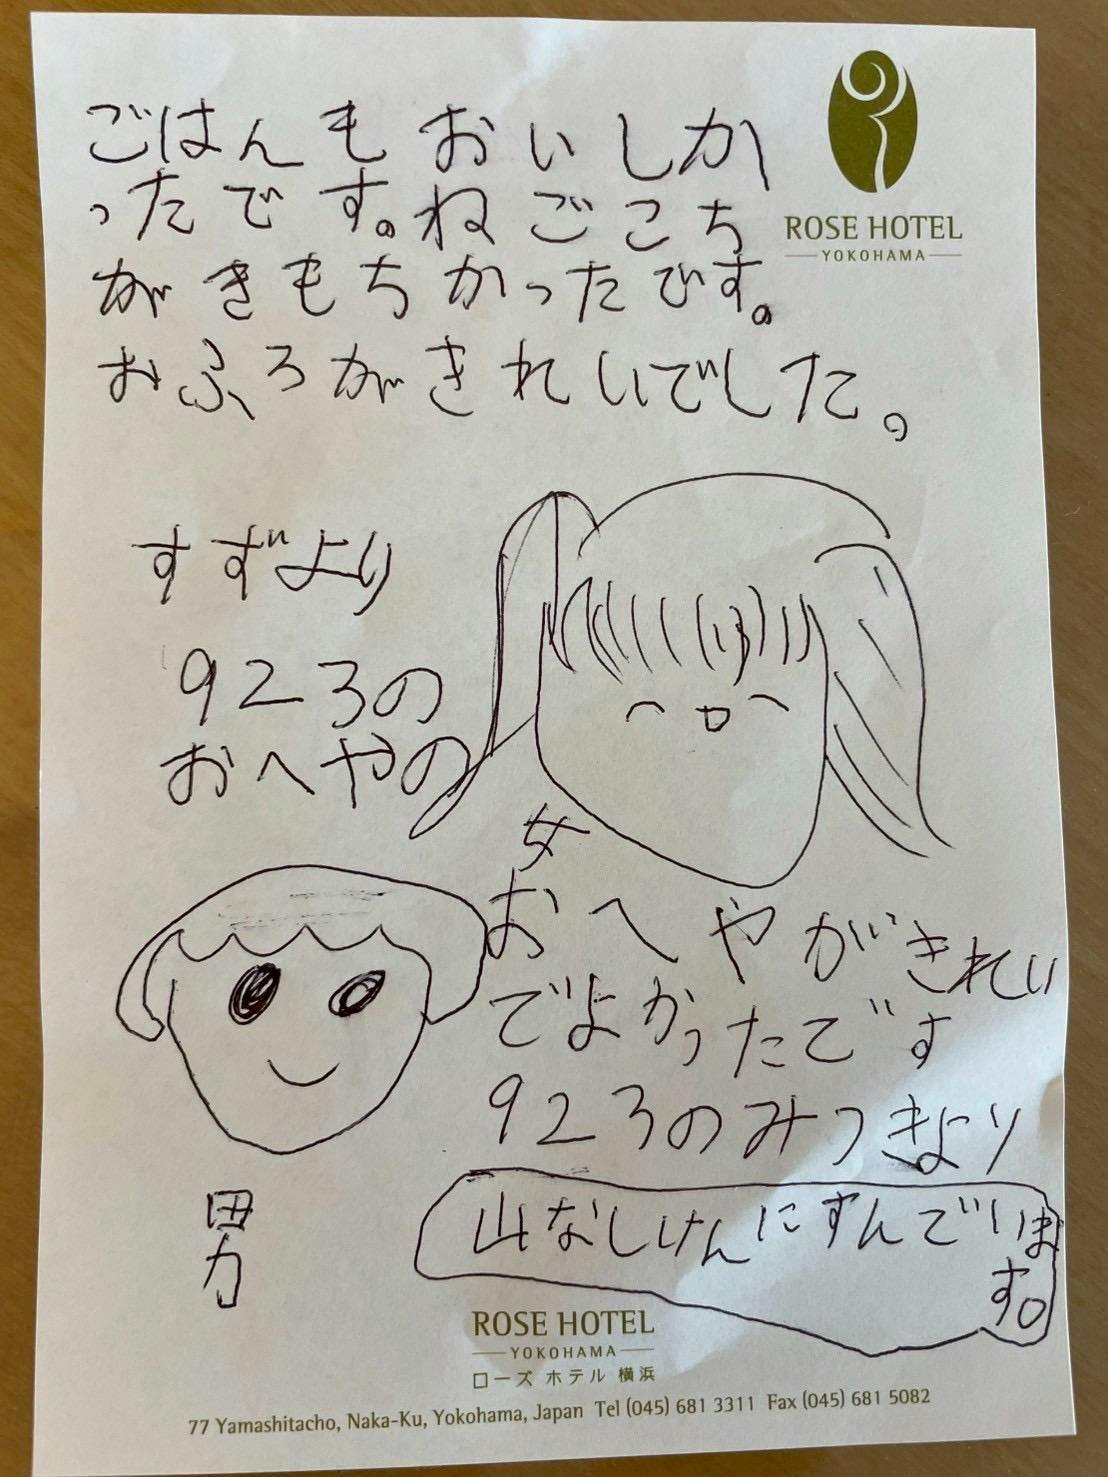 ごはんもおいしか
ったです。ねごこち
がきもちかったです。
おふろがきれいでした。
ROSE HOTEL
YOKOHAMA
すずより
923の
おへやの
女
おへやがきれい
でよかったです
923のみつきより
山なしけんにすんでいま
す。
男
ROSE HOTEL
YOKOHAMA
ローズ ホテル 横浜
77 Yamashitacho, Naka-Ku, Yokohama, Japan Tel (045) 681 3311 Fax (045) 681 5082